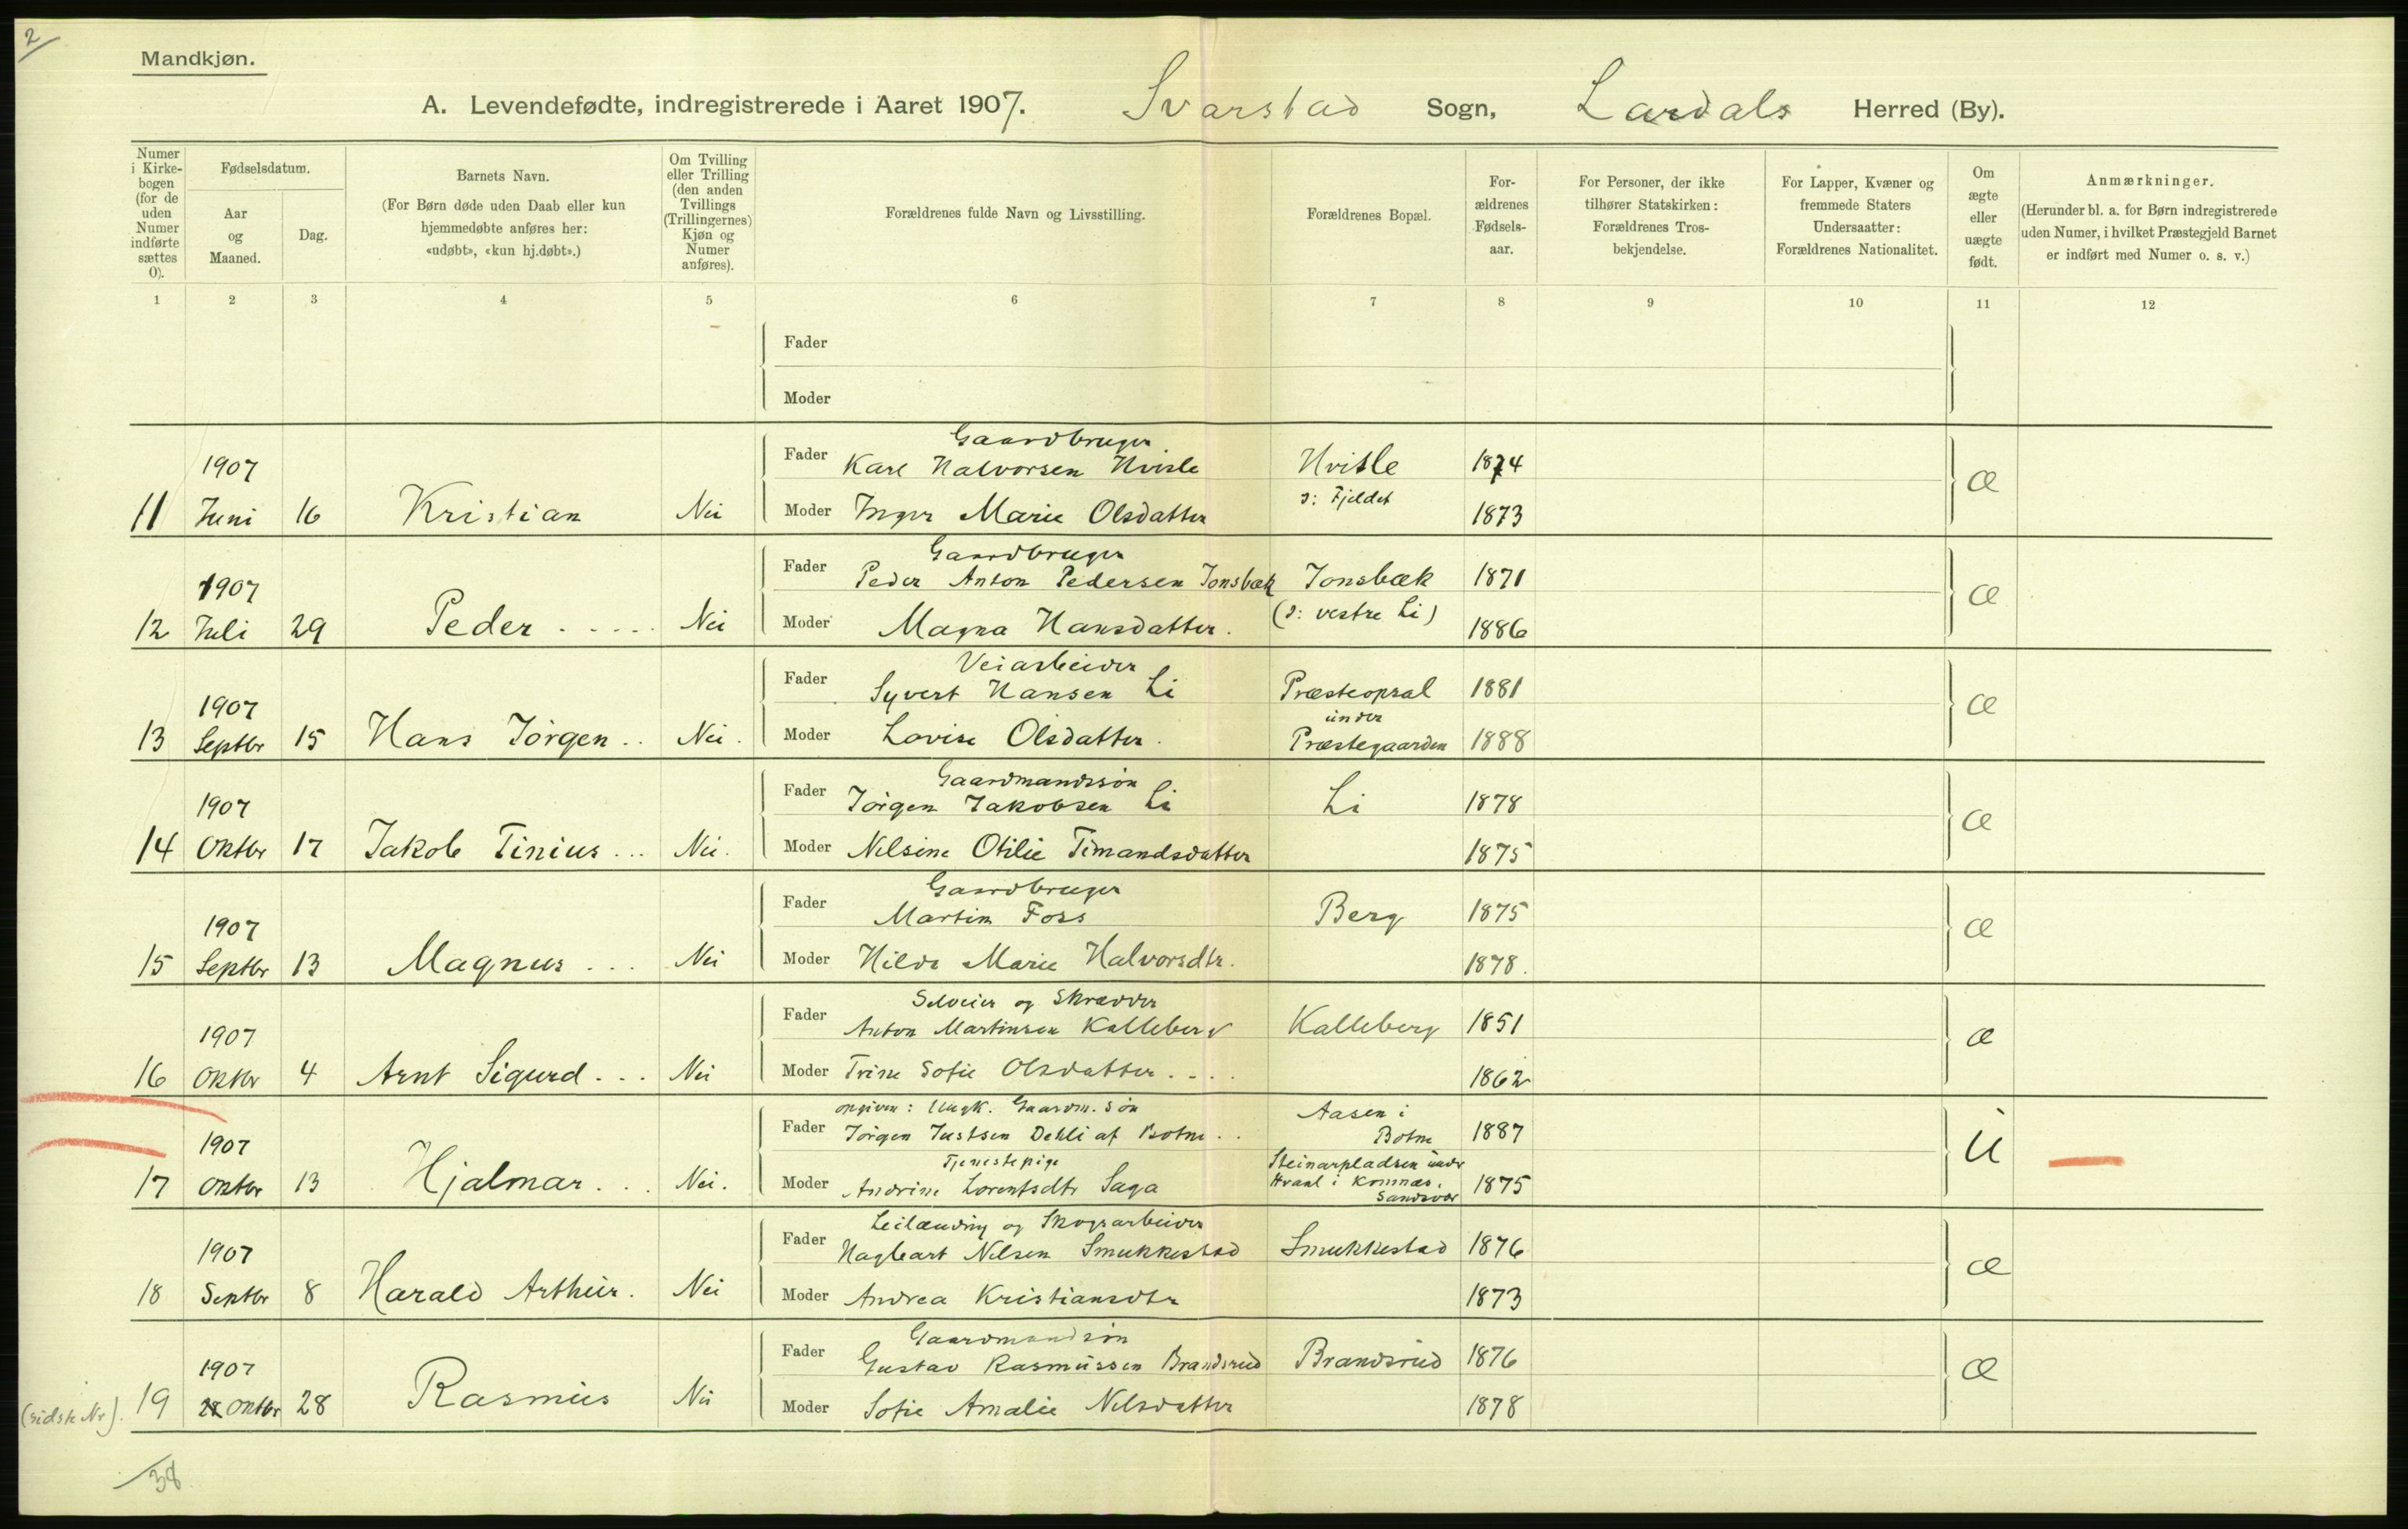 2
Mandkjøn.
A. Levendefødte, indregistrerede i Aaret 1907. Svarstad Sogn, Lardals Herred (By).
Numer i Kirkebogen (for de uden Numer indførte sættes 0).
Fødselsdatum.
Aar og Maaned.
Dag.
Barnets Navn.
(For Børn døde uden Daab eller kun hjemmedøbte anføres her: «udøbt», «kun hj.døbt».)
Om Tvilling eller Trilling (den anden Tvillings (Trillingernes) Kjøn og Numer anføres).
Forældrenes fulde Navn og Livsstilling.
Forældrenes Bopæl.
Forældrenes Fødselsaar.
For Personer, der ikke tilhører Statskirken: Forældrenes Trosbekjendelse.
For Lapper, Kvæner og fremmede Staters Undersaatter: Forældrenes Nationalitet.
Om ægte eller uægte født.
Anmærkninger.
(Herunder bl. a. for Børn indregistrerede uden Numer, i hvilket Præstegjeld Barnet er indført med Numer o. s. v.)
1 2 3 4 5 6 7 8 9 10 11 12
Fader
Moder
Gaardbruger
1907 Fader Karl Halvorsen Hvisle Hvisle 1874 æ
11 Juni 16 Kristian Nei Moder Inger Marie Olsdatter ɔ: Fjeldet 1873
Gaardbruger
1907 Fader Peder Anton Pedersen Jonsbæk Jonsbæk 1871 æ
12 Juli 29 Peder Nei Moder Magna Hansdatter. (ɔ: vestre Li) 1886
Veiarbeider
1907 Fader Syvert Hansen Li Præsteopsal 1881 æ
under
13 Septbr 15 Hans Jörgen .. Nei. Moder Lovise Olsdatter. Præstegaarden 1888
Gaardmandssön
1907 Fader Jörgen Jakobsen Li Li 1878 æ
14 Oktbr 17 Jakob Tinius ... Nei. Moder Nilsine Otilie Timandsdatter 1875
Gaardbruger
1907 Fader Martin Foss Berg 1875 æ
15 Septbr 13 Magnus ... Nei Moder Hilda Marie Halvorsdtr. 1878.
Selveier og Skrædder
1907 Fader Anton Martinsen Kalleberg Kalleberg 1851 æ
16 Oktbr 4 Arnt Sigurd ... Nei Moder Trine Sofie Olsdatter .... 1862
opgiven: Ungk. Gaardm. sön Aasen i
1907 Fader Jörgen Justsen Dehli af Botne .. Botne 1887 U
Tjenestepige Steinarpladsen under
17 Oktbr 13 Hjalmar ... Nei. Moder Andrine Lorentsdtr Saga Hvaal i Komnes, Sandsvær 1875
Leilænding og Skogsarbeider
1907 Fader Hagbart Nilsen Smukkestad Smukkestad 1876 æ
18 Septbr 8 Harald Arthur. Nei Moder Andrea Kristiansdtr 1873
Gaardmandssön
1907 Fader Gustav Rasmussen Brandsrud Brandsrud 1876 æ
(sidste Nr). 19 Oktbr 28 Rasmus Nei Moder Sofie Amalie Nilsdatter 1878
38